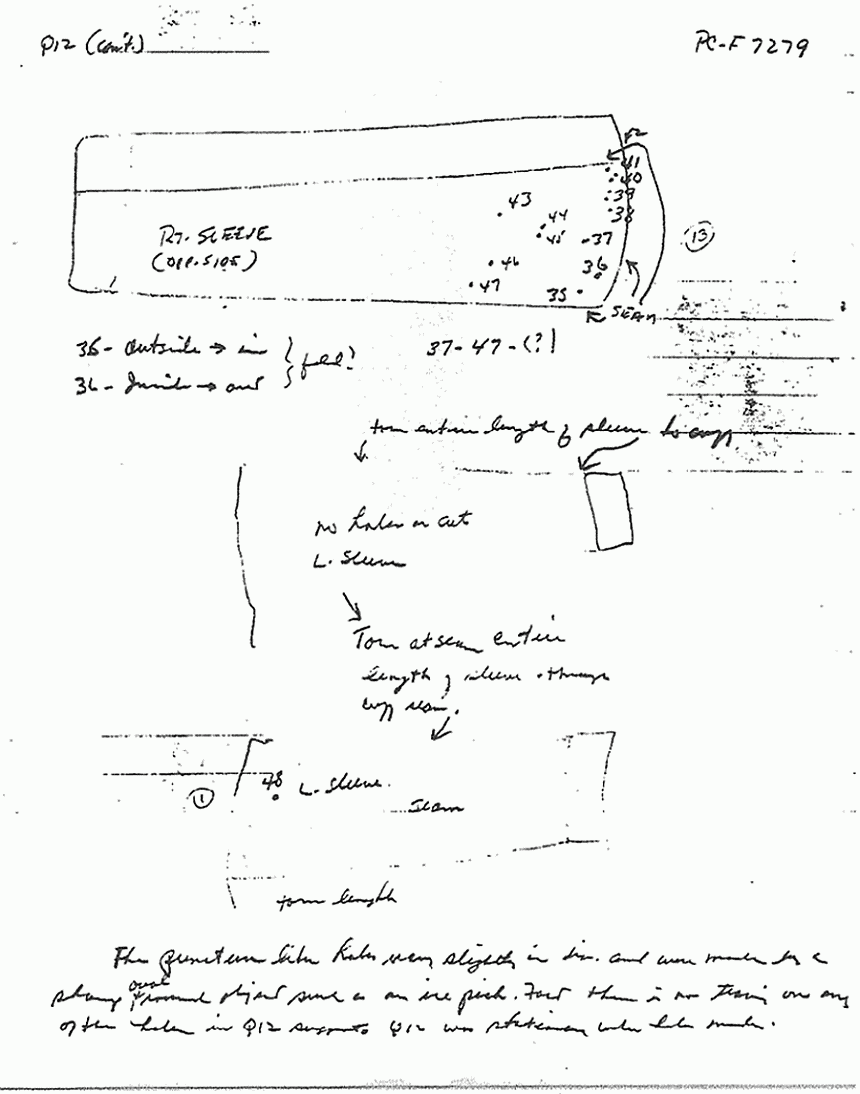 Q12 (cont.)
PC-F 7279
41
40
39
38
43
44
45
37
46
36
47
35
RT. SLEEVE
(OPP. SIDE)
13
SEAM
35 - Outside → in
36 - Inside → out
37 - 47 - (?)
torn entire length of sleeve to cuff
no holes or cuts
L. Sleeve
Torn at seam entire
length of sleeve + through
cuff seam.
48
L. Sleeve.
1
seam
torn length
The puncture like holes vary slightly in dia. and were made by a
sharp oval round object such as an ice pick. Fact there is no tearing on any
of the holes in Q12 suggests Q12 was stationary when holes made.